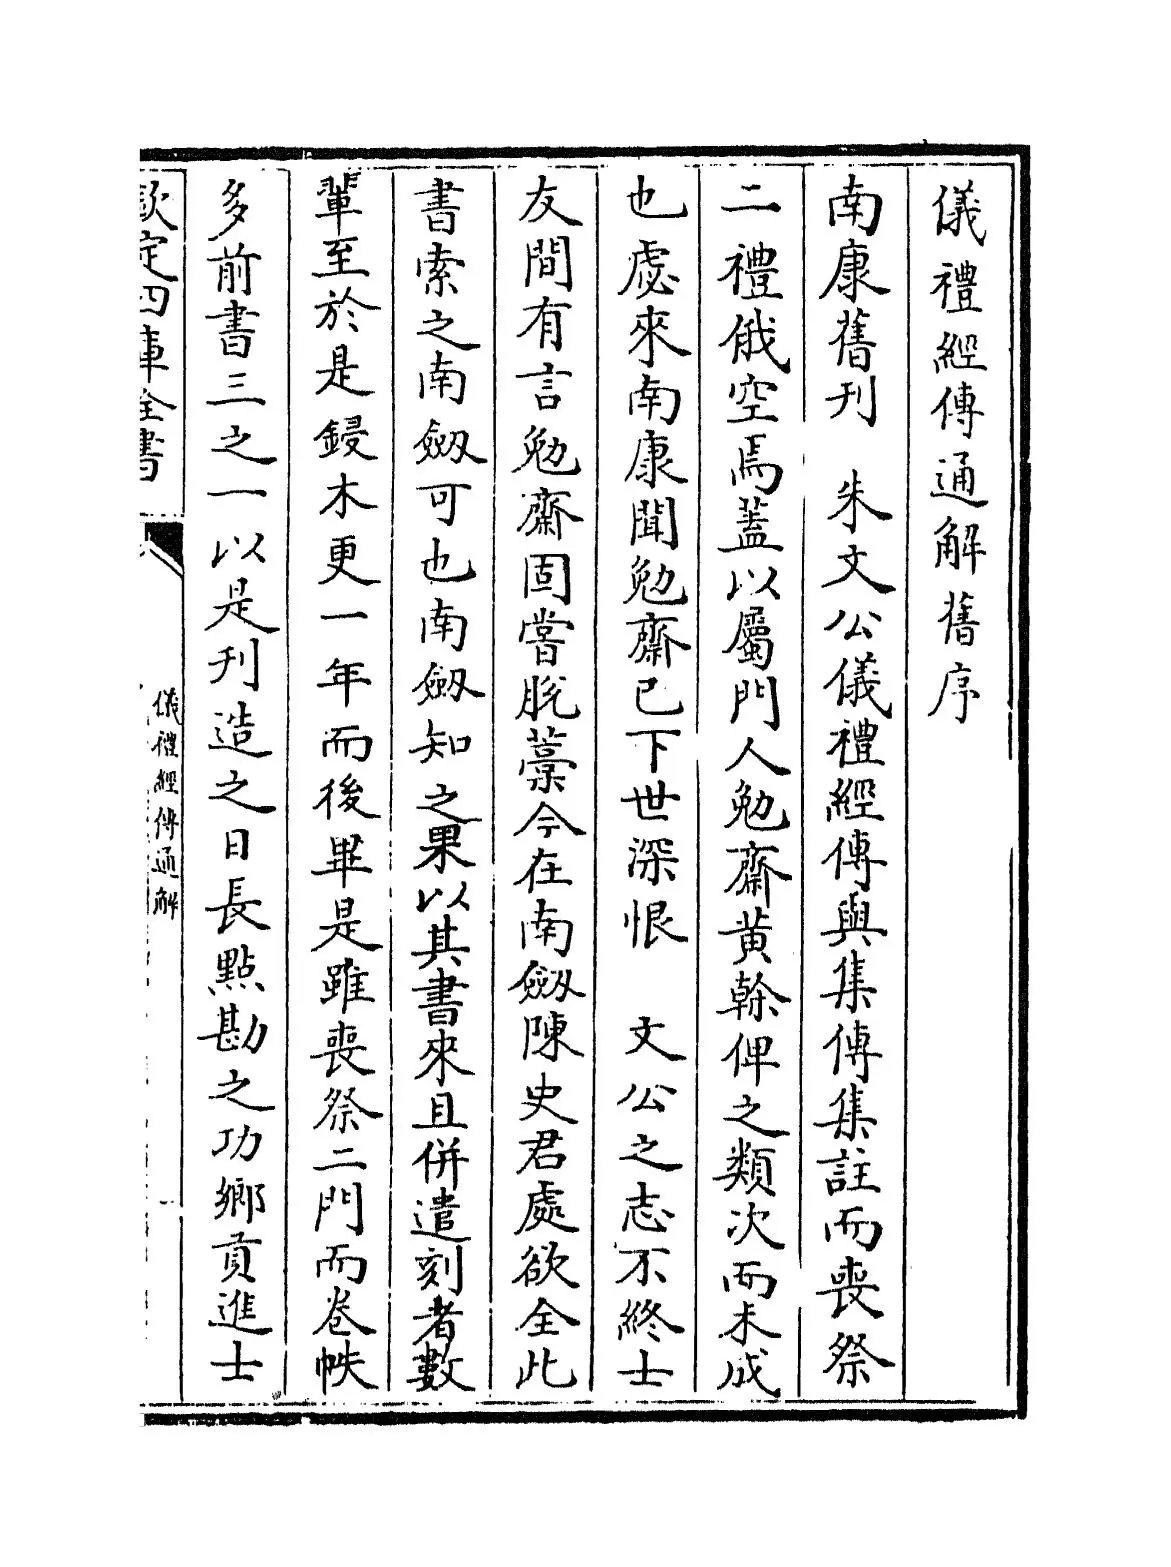 儀禮經傳通解舊序
南康舊刊　朱文公儀禮經傳與集傳集註而喪祭
二禮俄空焉蓋以屬門人勉齋黄榦俾之類次而未成
也虙來南康聞勉齋已下世深恨　文公之志不終士
友間有言勉齋固嘗脱藁今在南劒陳史君處欲全此
書索之南劒可也南劒知之果以其書來且併遣刻者數
輩至於是鋟木更一年而後畢是雖喪祭二門而卷帙
多前書三之一以是刊造之日長㸃勘之功鄉貢進士
欽定四庫全書
儀禮經傳通解